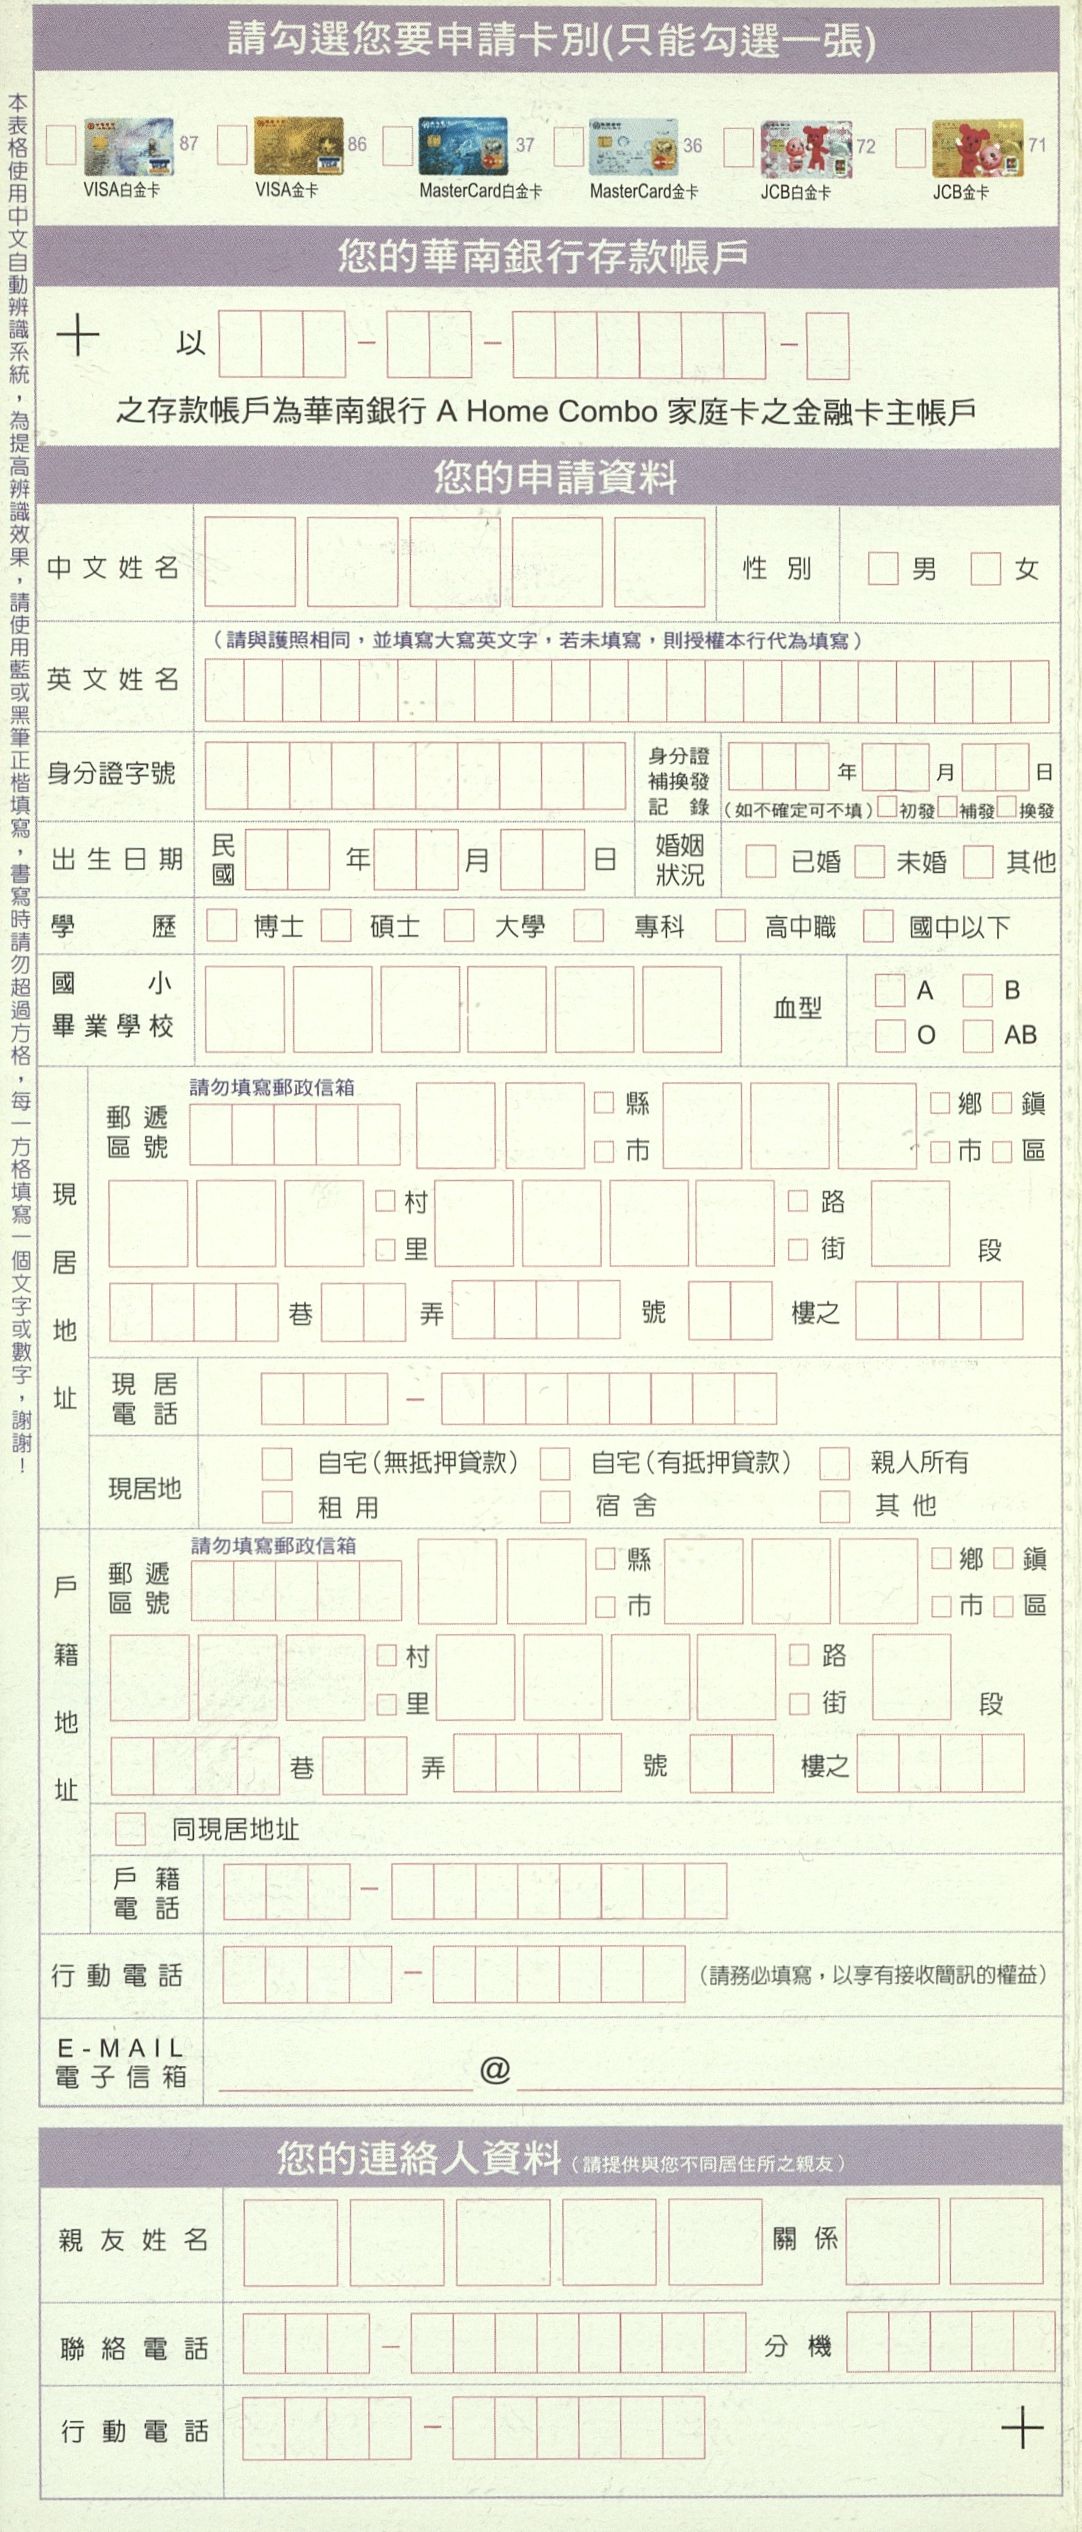 請勾選您要申請卡別(只能勾選一張)
87
86
37
36
72
71
VISA白金卡
VISA金卡
MasterCard白金卡
MasterCard金卡
JCB白金卡
JCB金卡
您的華南銀行存款帳戶
以 - - -
之存款帳戶為華南銀行 A Home Combo 家庭卡之金融卡主帳戶
您的申請資料
中文姓名
性別 男 女
英文姓名
（請與護照相同，並填寫大寫英文字，若未填寫，則授權本行代為填寫）
身分證字號
身分證
補換發
記錄
年 月 日
（如不確定可不填） 初發 補發 換發
出生日期
民
國
年 月 日
婚姻
狀況
已婚 未婚 其他
學歷 博士 碩士 大學 專科 高中職 國中以下
國小
畢業學校
血型
A B
O AB
現居地址
請勿填寫郵政信箱
郵遞
區號
縣
市
鄉 鎮
市 區
村
里
路
街
段
巷 弄 號 樓之
現居
電話
-
現居地
自宅（無抵押貸款） 自宅（有抵押貸款） 親人所有
租用 宿舍 其他
戶籍地址
請勿填寫郵政信箱
郵遞
區號
縣
市
鄉 鎮
市 區
村
里
路
街
段
巷 弄 號 樓之
同現居地址
戶籍
電話
-
行動電話 - （請務必填寫，以享有接收簡訊的權益）
E-MAIL
電子信箱
@
您的連絡人資料（請提供與您不同居住所之親友）
親友姓名 關係
聯絡電話 - 分機
行動電話 -
本表格使用中文自動辨識系統，為提高辨識效果，請使用藍或黑筆正楷填寫，書寫時請勿超過方格，每一方格填寫一個文字或數字，謝謝！